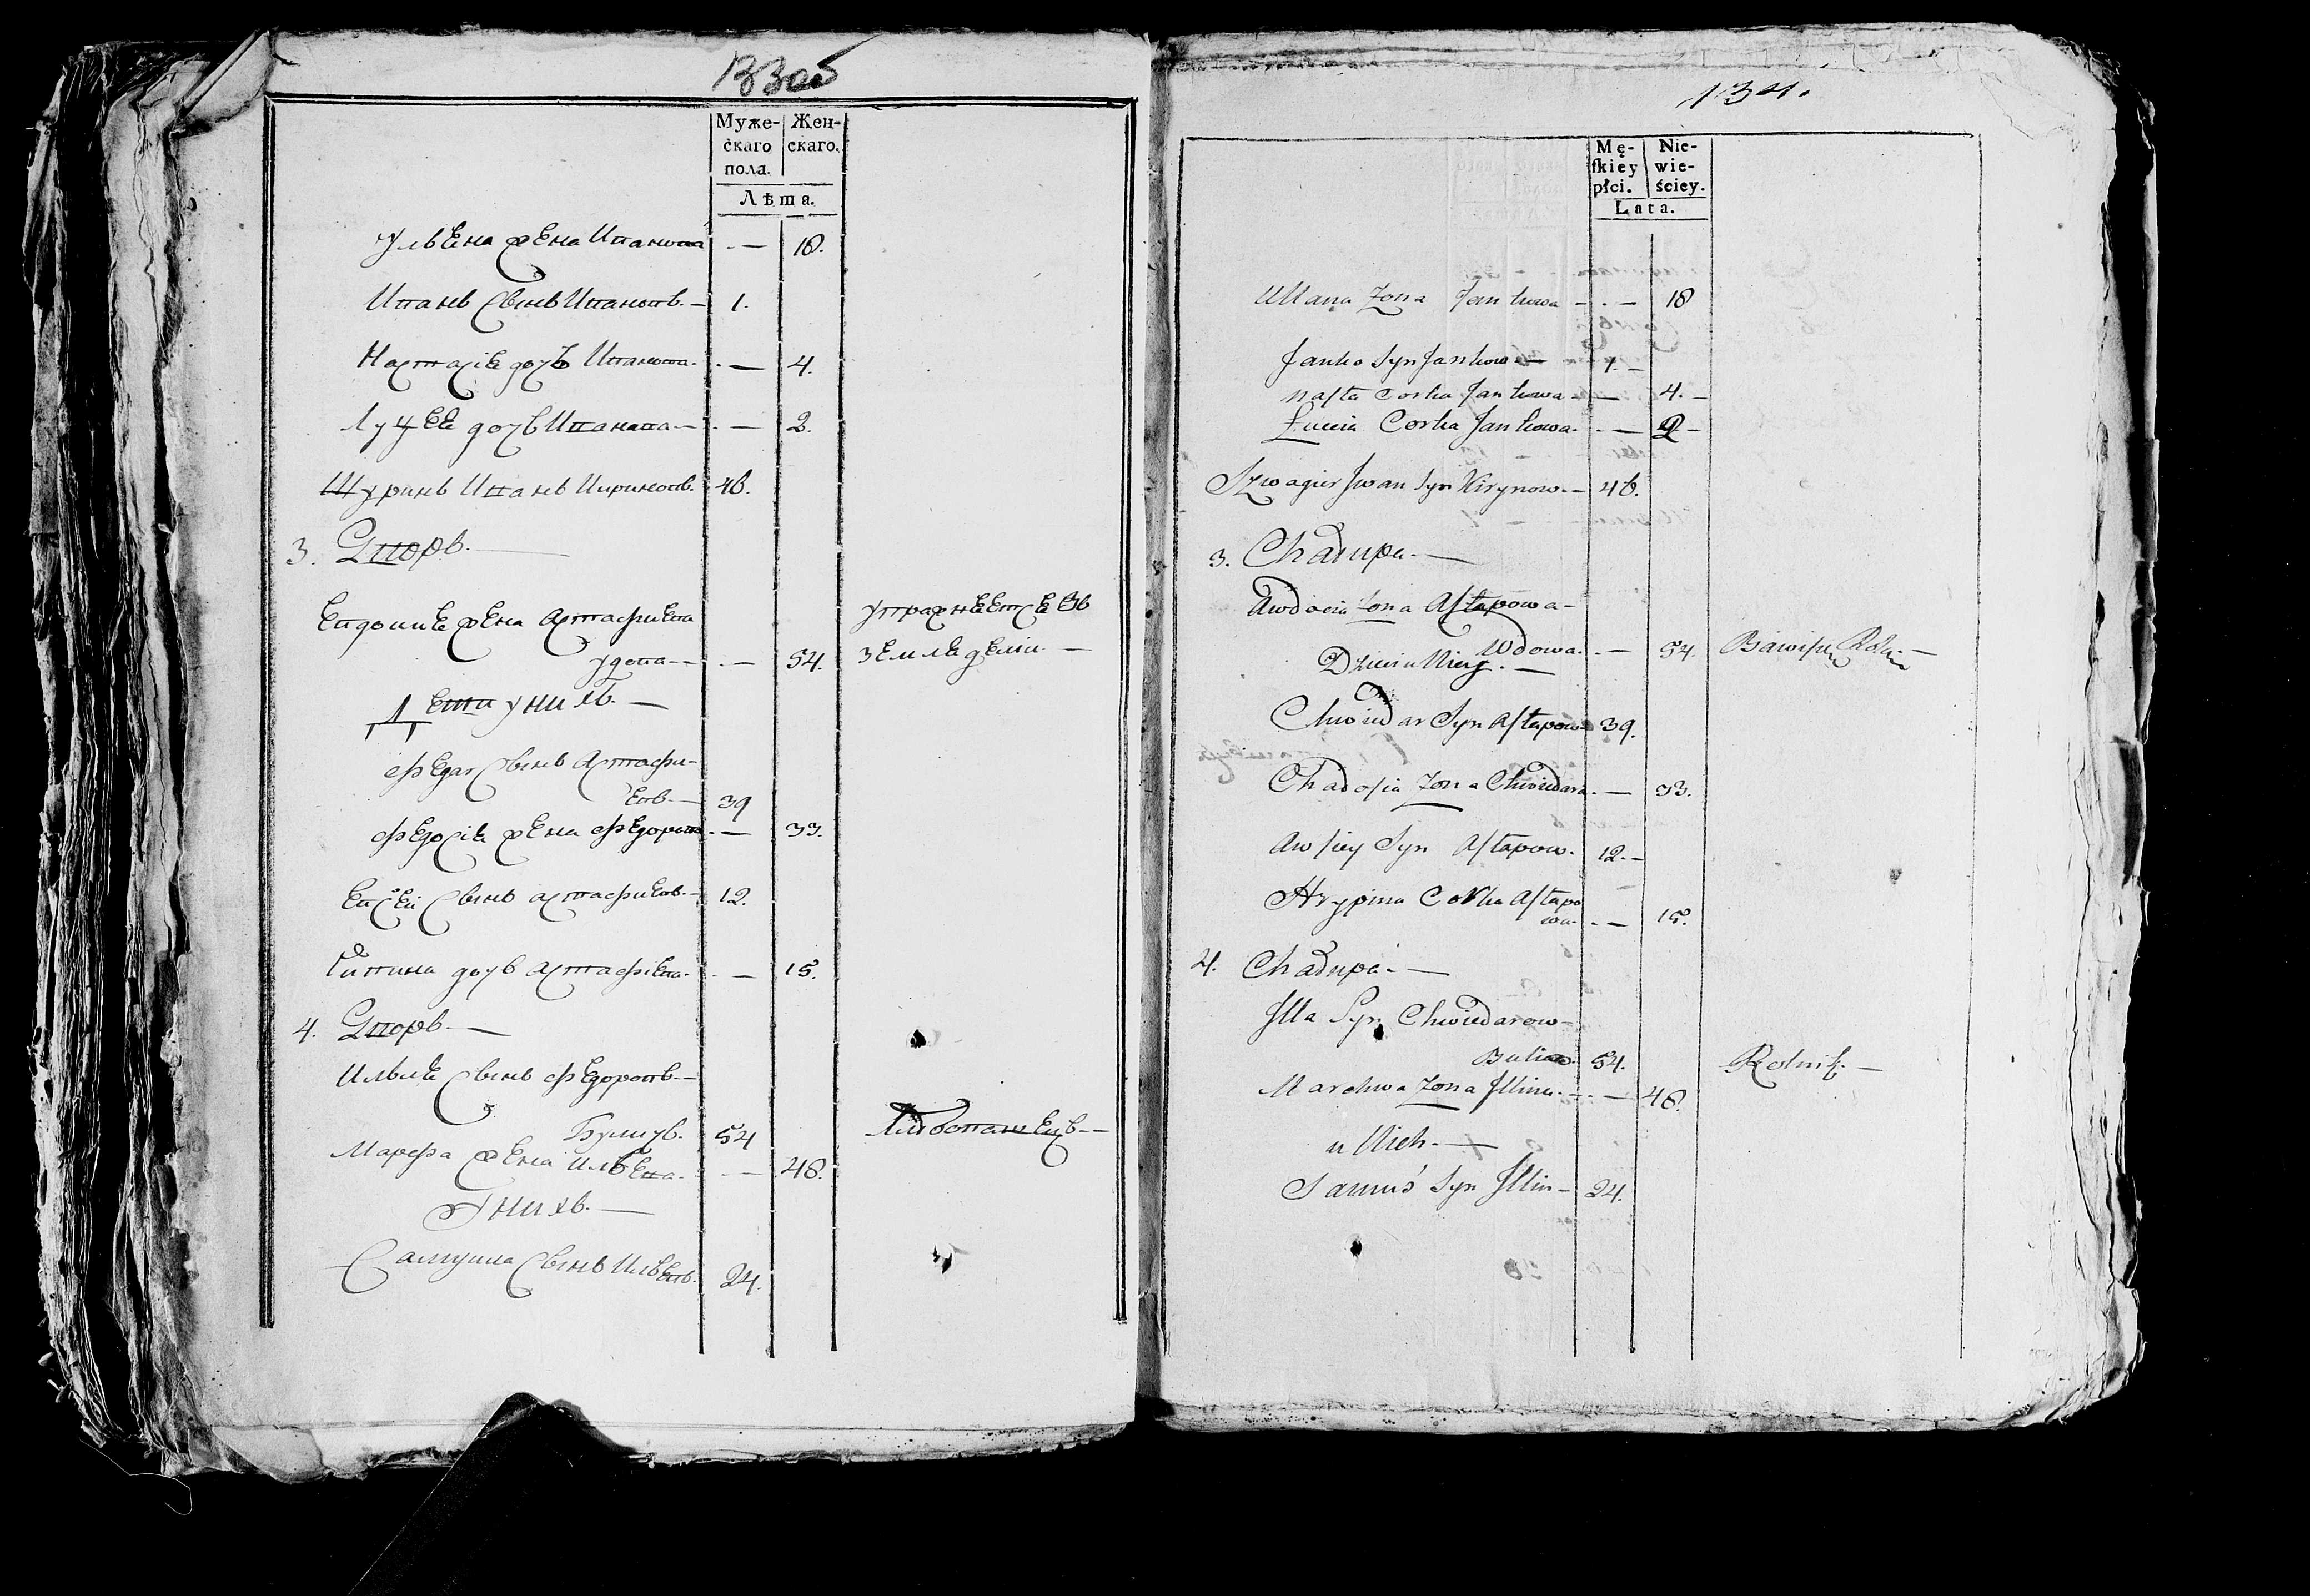 133об
Муже-
скаго
пола.
Жен-
скаго.
Лѣта.
Ульена жена Иванова - — 18.
Иванъ сынъ Ивановъ. — 1.
Настасіе дочь Иванова. - — 4.
Луцее дочь Иванава. - — 2.
Шуринъ Иванъ Кириновъ. 46.
3. Дворъ. —
Евдокие жена Астафиева
удова - - — 54.
упражнеетсе въ
земледеліи. —
Дети у нихъ. —
Федаr сынъ Астафи-
евъ. — 39
Федосіе жена Федорова - — 33.
Евсей сынъ Астафиевъ. — 12.
Гипина дочь Астафіева. - — 15.
4. Дворъ. —
Илье сынъ Федоровъ. —
Буликъ. 54
Хлебопашецъ. —
Марфа жена Ильева. - — 48.
У нихъ. —
Самуила сынъ Ильевъ. 24.
134.
Mę-
ſkiey
płci.
Nie-
wie-
ściey.
Lata.
Ullana Zona Jankowa - . — 18
Janko Syn Jankow — 1. -
Naſta Corka Jankowa - — 4. -
Łucia Corka Jankowa. - — 2 -
Szwagier Iwan Syn Kirynow. — 46.
3. Chałupa. —
Awdocia Zona Aſtapowa -
Wdowa. - — 54.
Dzieci u Niey. —
Chwiedar Syn Aſtapow 39.
Chadoſia Zona Chwiedara. — 33.
Awſiey Syn Aſtapow. 12. -
Hrypina Corka Aſtapo
wa. - — 15.
4. Chałupa. —
Illa Syn Chwiedarow -
Bulik. 54.
Rolnik. —
Marchwa Zona Illina. - . — 48.
u Nich. —
Samuś Syn Illin - 24.